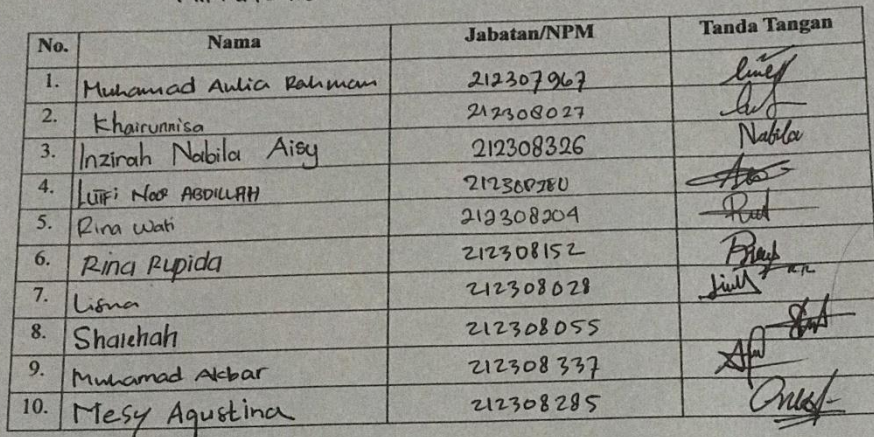 No. Nama Jabatan/NPM Tanda Tangan
1. Muhamad Aulia Rahman 212307967
2. Khairunnisa 212308027
3. Inzirah Nabila Aisy 212308326 Nabila
4. Lutfi Noor ABDILLAH
5. Rina Wati 212308204
6. Rina Rupida 212308152
7. Lisna 212308028
8. Shalehah 212308055
9. Muhamad Akbar 212308337
10. Mesy Agustina 212308285